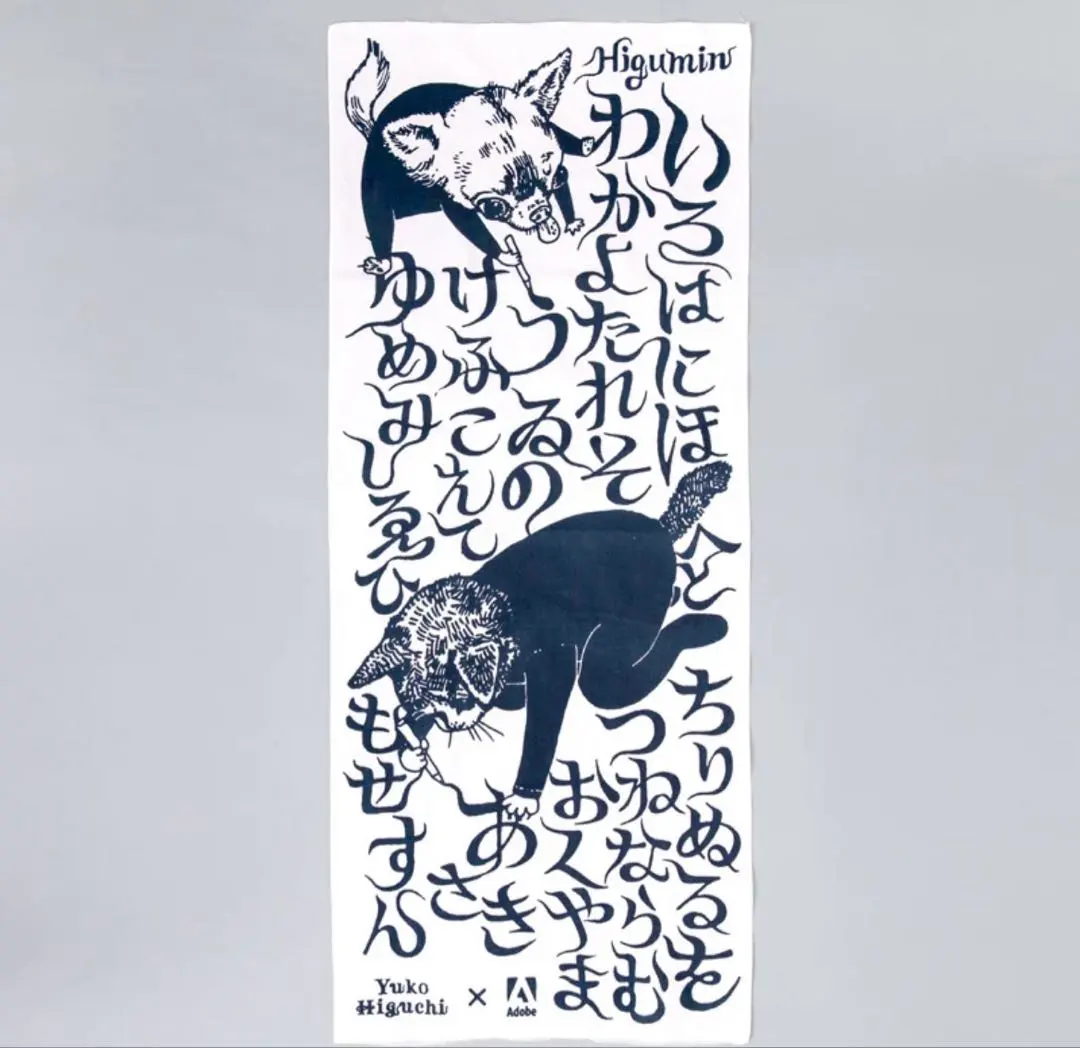 Higumin
いろはにほへとちりぬるを
わかよたれそつねならむ
うゐのおくやま
けふこえてあさき
ゆめみしゑひもせすん
Yuko
Higuchi
×
Adobe